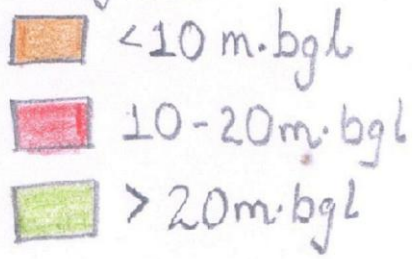 <10 m.bgl
10-20m.bgl
> 20m.bgl